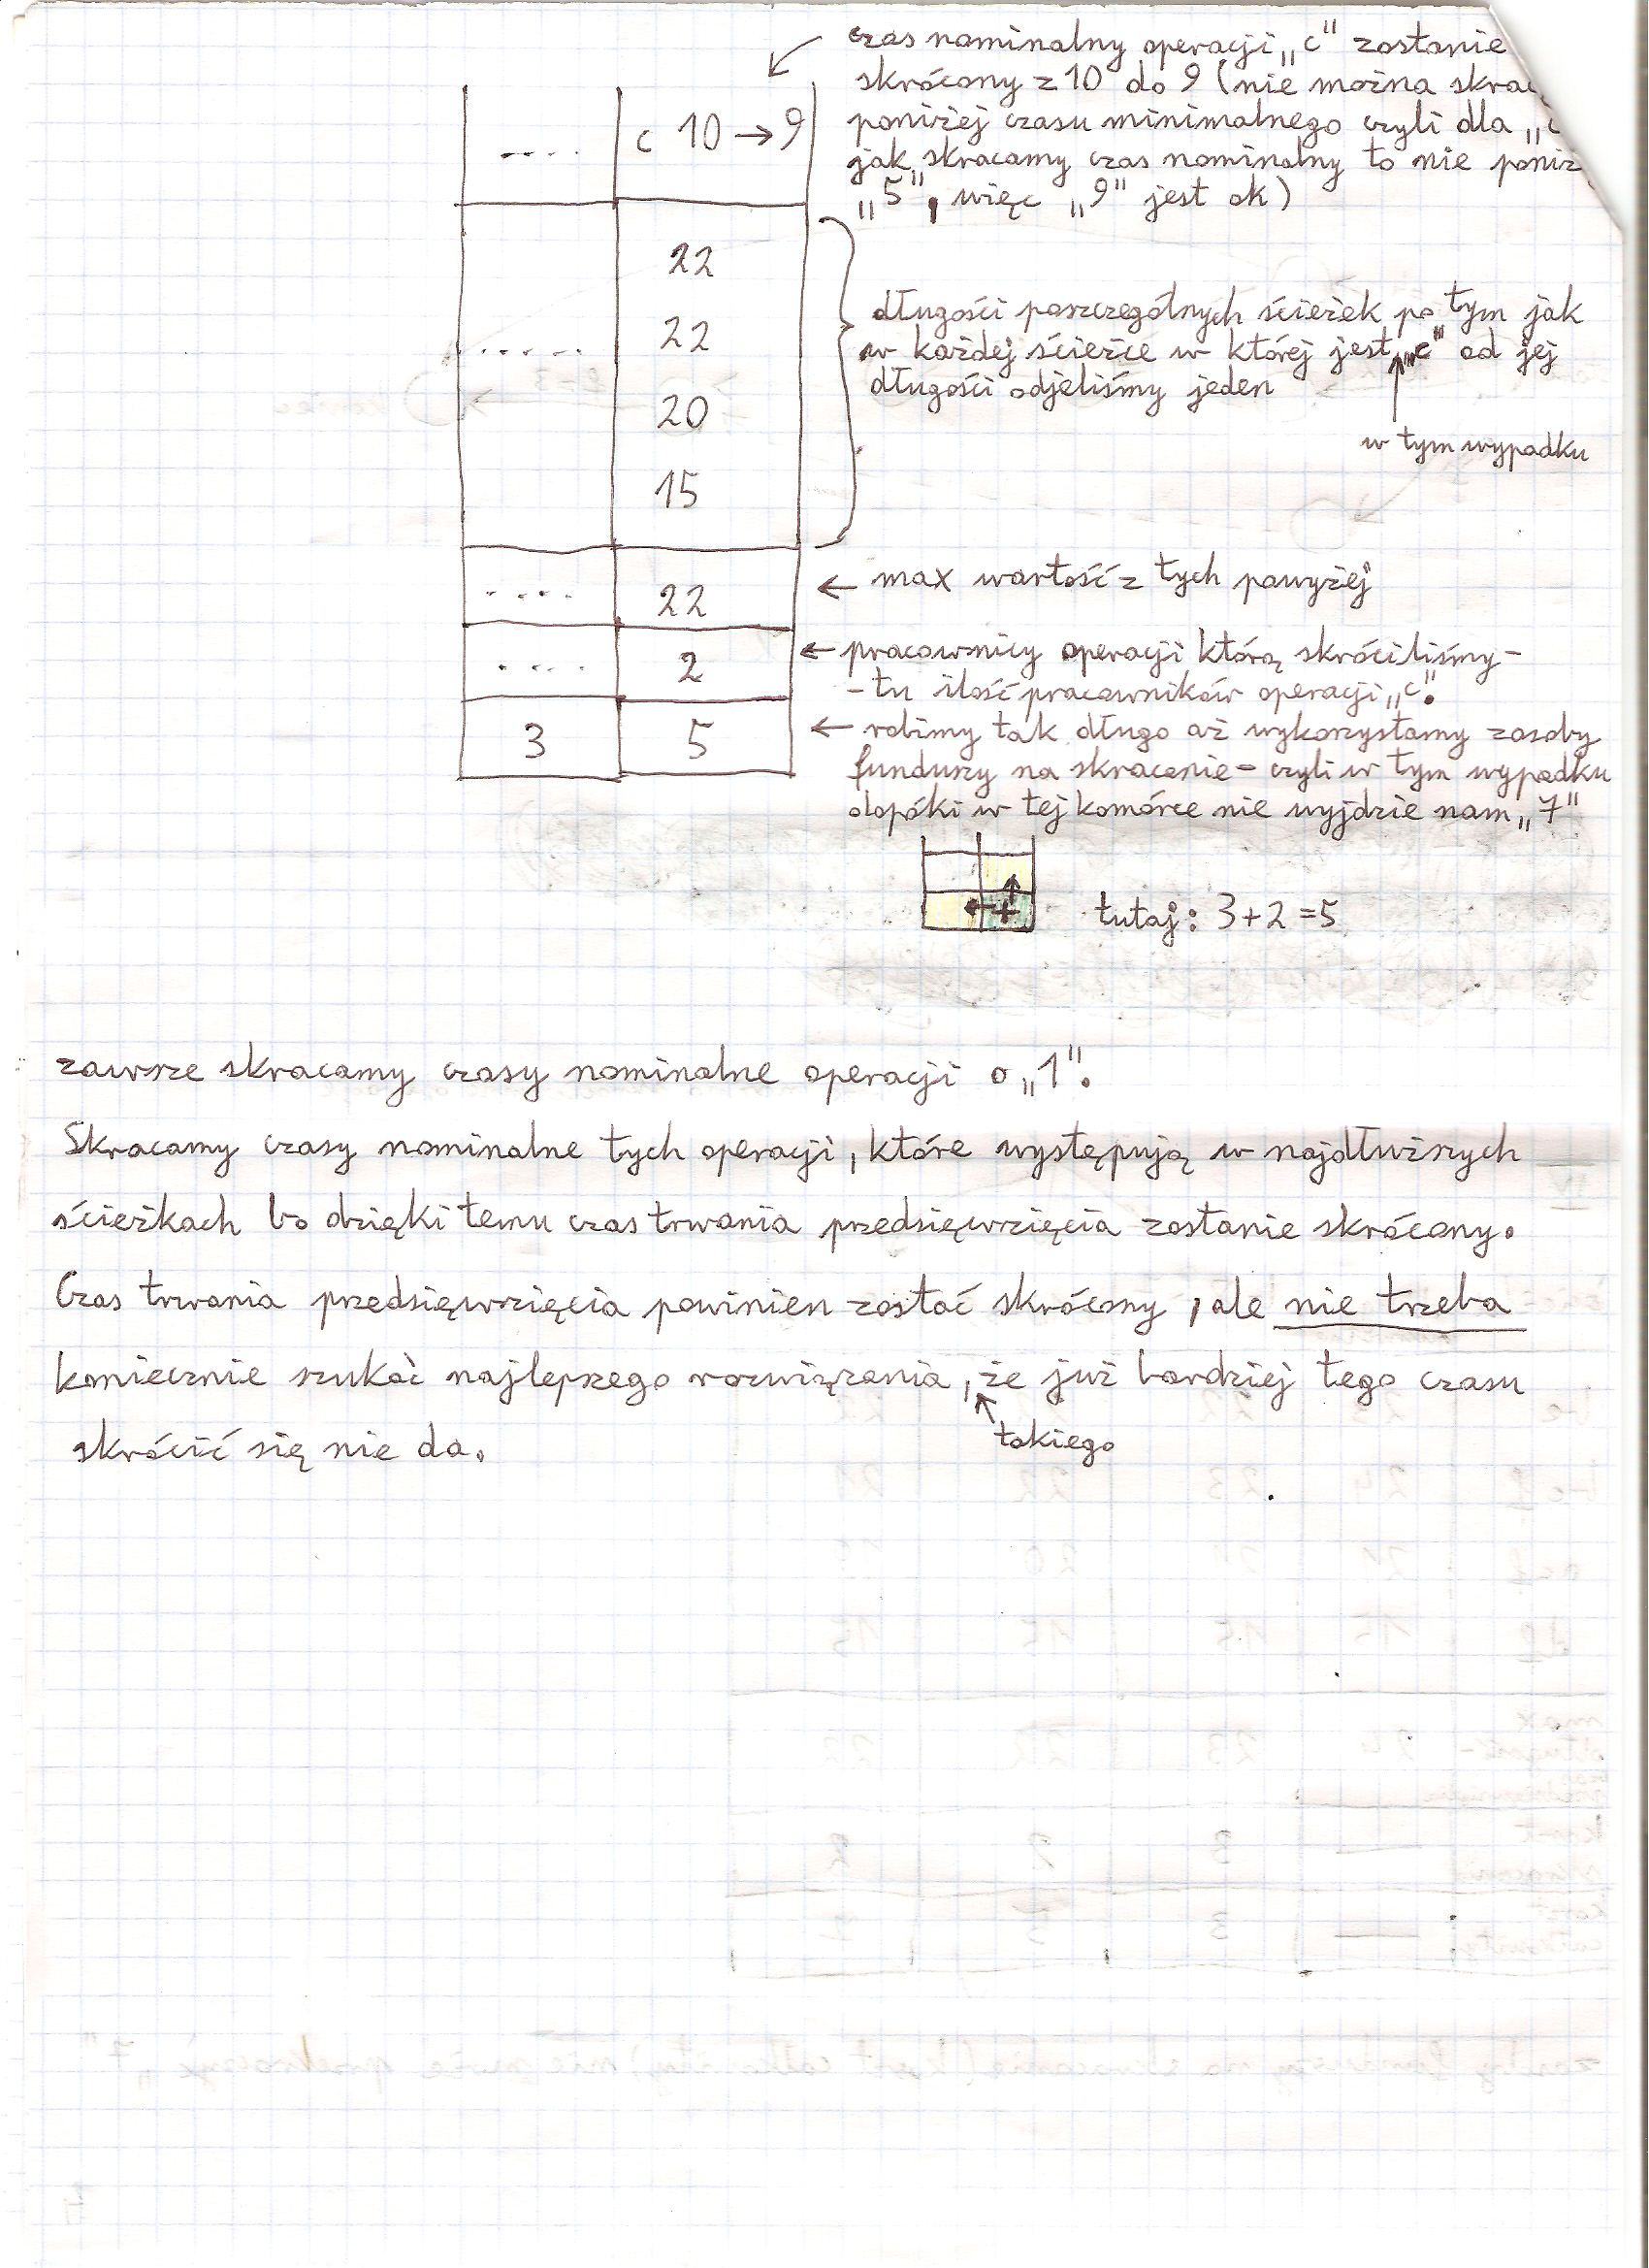 czas nominalny operacji „c" zostanie
skrócony z 10 do 9 (nie można
poniżej czasu minimalnego czyli dla
jak skracamy czas nominalny to nie
„5", więc „9" jest ok)
.... c 10 → 9
22
długości poszczególnych ścieżek po tym jak
...... 22
w każdej ścieżce w której jest „c" od jej
długości odjeliśmy jeden
20
w tym wypadku
15
.... 22 ← max wartość z tych powyżej
.... 2 ← pracownicy operacji którą skróciliśmy -
- tu ilość pracowników operacji „c".
3 5 ← robimy tak długo aż wykorzystamy zasoby
funduszy na skracanie - czyli w tym wypadku
dopóki w tej komórce nie wyjdzie nam „7"
← + ↑ tutaj: 3+2=5
zawsze skracamy czasy nominalne operacji o „1".
Skracamy czasy nominalne tych operacji, które występują w najdłuższych
ścieżkach bo dzięki temu czas trwania przedsięwzięcia zostanie skrócony.
Czas trwania przedsięwzięcia powinien zostać skrócony, ale nie trzeba
koniecznie szukać najlepszego rozwiązania, że już bardziej tego czasu
↑ takiego
skrócić się nie da.